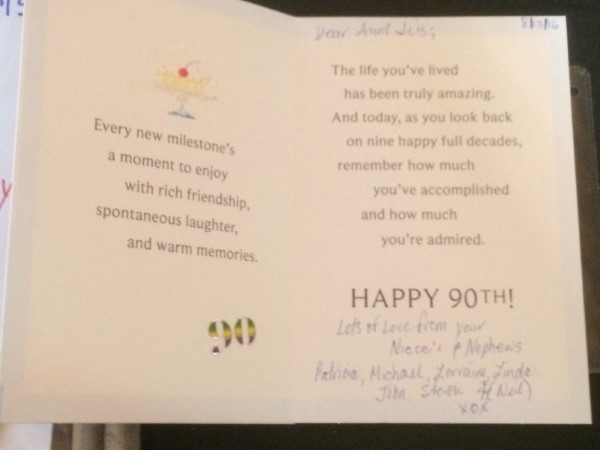 Every new milestone's
a moment to enjoy
with rich friendship,
spontaneous laughter,
and warm memories.
90
Dear Aunt Lois;
The life you've lived
has been truly amazing.
And today, as you look back
on nine happy full decades,
remember how much
you've accomplished
and how much
you're admired.
HAPPY 90TH!
Lots of Love from your
Niece's & Nephews
Patricia, Michael, Lorraine, Linda
John, Steven &(Neil)
XOX